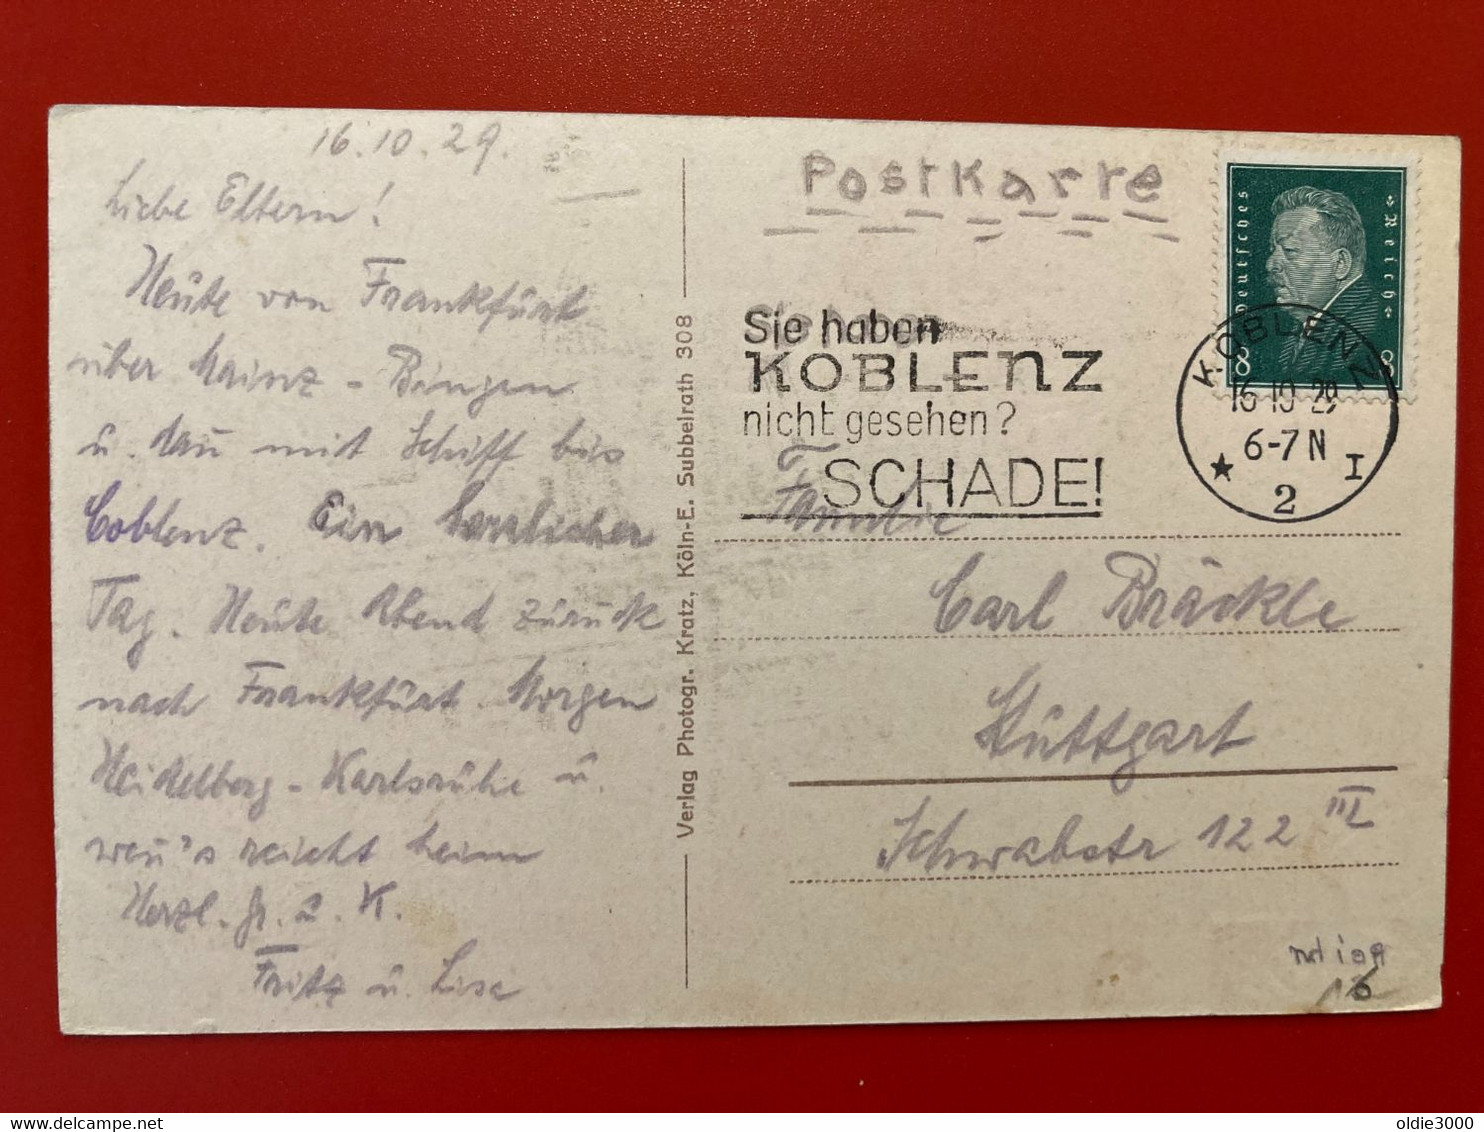 16.10.29.
Liebe Eltern!
Heute von Frankfurt
über Mainz - Bingen
u. dan̄ mit Schiff bis
Coblenz. Ein herrlicher
Tag. Heute Abend zurück
nach Frankfurt. Morgen
Heidelberg - Karlsruhe u.
wen̄'s reicht heim
Herzl. Gr. u. K.
Fritz u. Lise
Verlag Photogr. Kratz, Köln-E. Subbelrath 308
Postkarte
Deutsches Reich
8 8
Sie haben
KOBLENZ
nicht gesehen?
SCHADE!
KOBLENZ
16 10 29
6-7 N
★ 2 I
Familie
Carl Bräckle
Stuttgart
Schwabstr 122 III
16
oldie3000